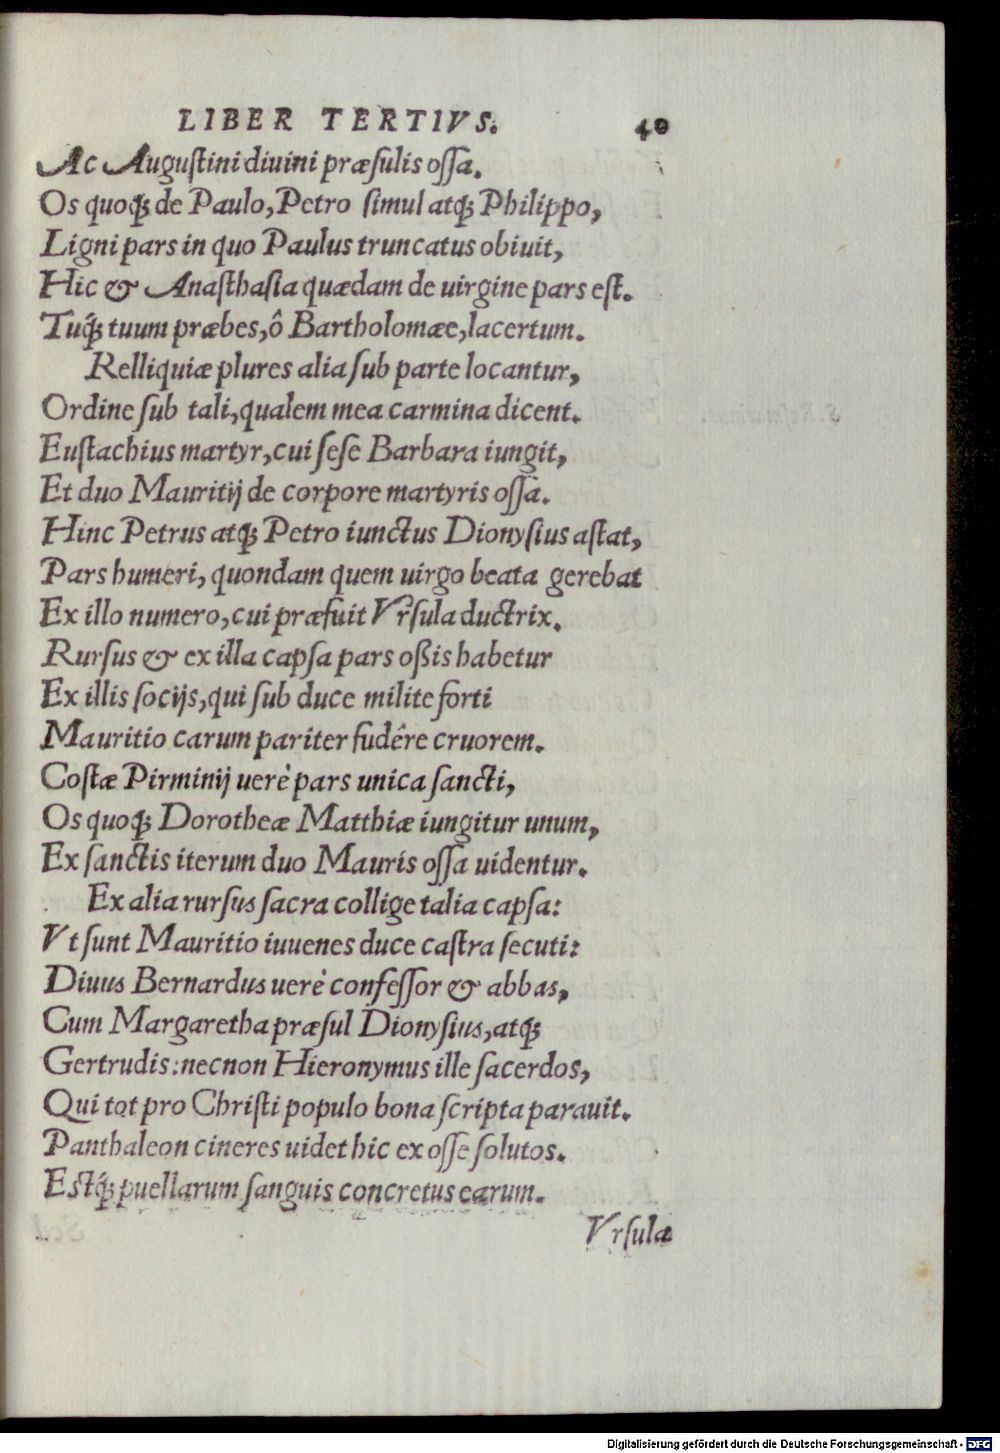 LIBER TERTIVS. 40
Ac Auguſtini diuini præſulis oſſa.
Os quoqꝫ de Paulo, Petro ſimul atqꝫ Philippo,
Ligni pars in quo Paulus truncatus obiuit,
Hic & Anaſthaſia quædam de uirgine pars eſt.
Tuqꝫ́ tuum præbes, ô Bartholomæe, lacertum.
Relliquiæ plures alia ſub parte locantur,
Ordine ſub tali, qualem mea carmina dicent.
Euſtachius martyr, cui ſeſe Barbara iungit,
Et duo Mauritij de corpore martyris oſſa.
Hinc Petrus atqꝫ Petro iunctus Dionyſius aſtat,
Pars humeri, quondam quem uirgo beata gerebat
Ex illo numero, cui præfuit Vrſula ductrix.
Rurſus & ex illa capſa pars oßis habetur
Ex illis ſocijs, qui ſub duce milite forti
Mauritio carum pariter fudêre cruorem.
Coſtæ Pirminij uerè pars unica ſancti,
Os quoqꝫ Dorotheæ Matthiæ iungitur unum,
Ex ſanctis iterum duo Mauris oſſa uidentur.
Ex alia rurſus ſacra collige talia capſa:
Vt ſunt Mauritio iuuenes duce caſtra ſecuti:
Diuus Bernardus uerè confeſſor & abbas,
Cum Margaretha præſul Dionyſius, atqꝫ
Gertrudis: necnon Hieronymus ille ſacerdos,
Qui tot pro Chriſti populo bona ſcripta parauit.
Panthaleon cineres uidet hic ex oſſe ſolutos.
Eſtqꝫ́ puellarum ſanguis concretus earum.
Vrſulæ
Digitalisierung gefördert durch die Deutsche Forschungsgemeinschaft - DFG